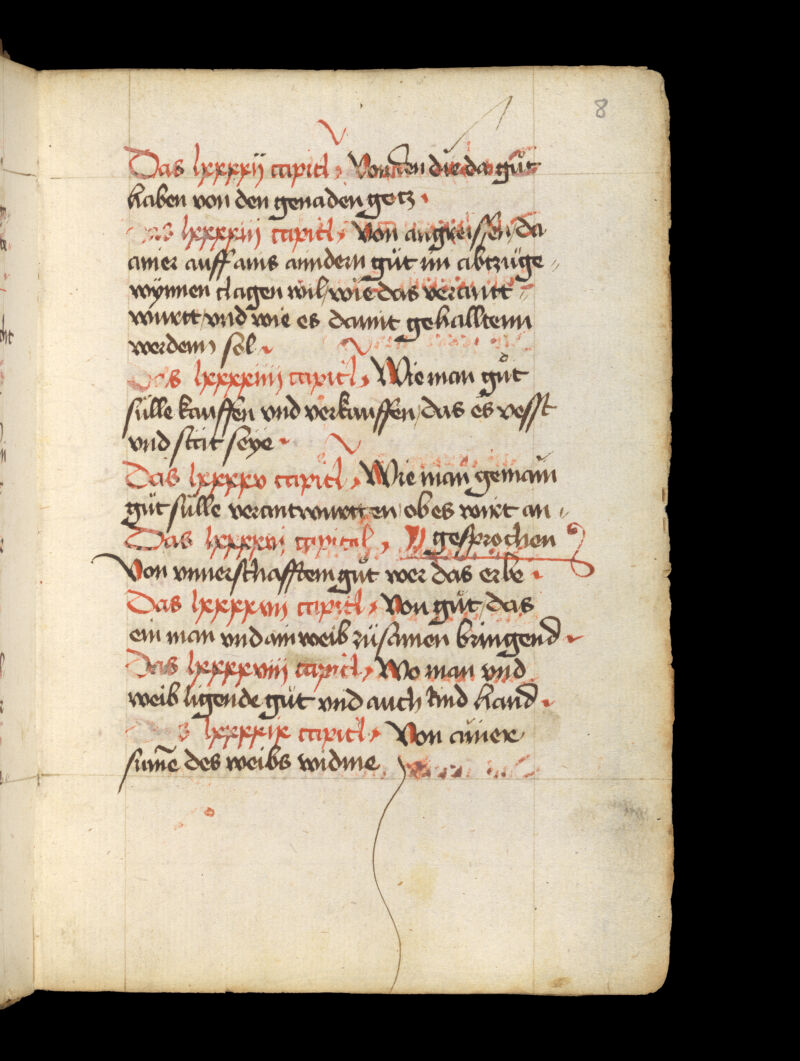 8
Das lxxxxij capitl, Von den die da gůt
haben von den genaden gotz.
Das lxxxxiij capitl, Von angreiffen, da
ainer auff ains anndern gůt im abtzuge=
wÿnnen clagen wil, wie das verantt=
wurtt, vnd wie es damit gehalltenn
werdenn sol.
Das lxxxxiiij capitl, Wie man gůt
sülle kauffen vnd verkauffen, das es vesst
vnd stät seye.
Das lxxxxv capitl, Wie man gemain
gůt sülle verantwurtten ob es wirt an=
Das lxxxxvi capitel, gesprochen
Von vnuerschafftem gůt wer das erbe.
Das lxxxxvii capitl, Von gůt, das
ein man vnd ain weib zůsamen bringend.
Das lxxxxviii capitl, Wo man vnd
weib ligende gůt vnd auch kind hand.
Das lxxxxix capitl, Von ainer
sum̄e des weibs widme